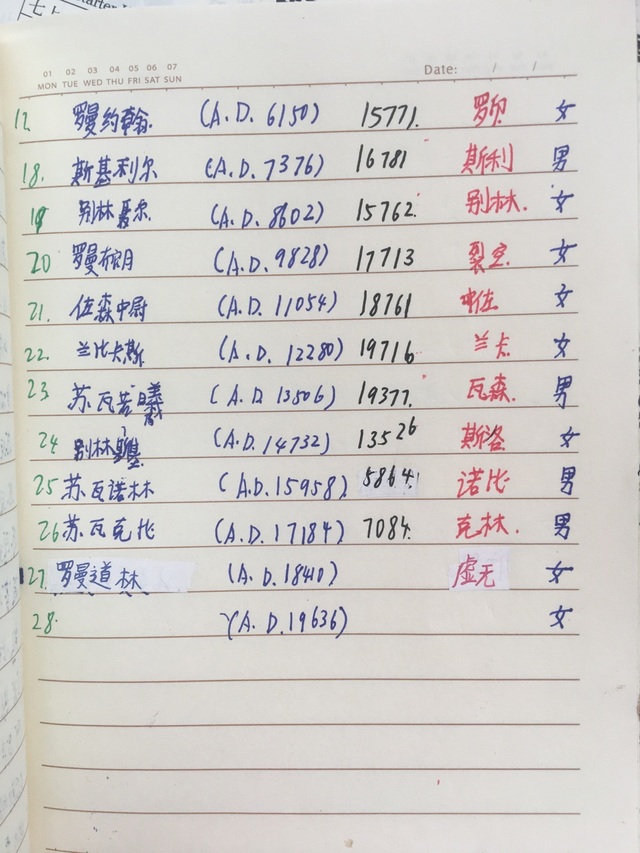 01 02 03 04 05 06 07
MON TUE WED THU FRI SAT SUN
Date: / /
罗曼约翰 (A.D. 6150) 15771. 罗印 女
18. 斯基利尔 (A.D. 7376) 16781 斯利 男
19 别林 (A.D. 8602) 15762. 别林. 女
20 罗曼 (A.D. 9828) 17713 裂空 女
21. 佐森中尉 (A.D. 11054) 18761 佐 女
22. 兰比卡斯 (A.D. 12280) 19716 兰卡 女
23 苏瓦若曦 (A.D 13506) 19377. 瓦森. 男
24 别林 (A.D. 14732) 13526 斯洛 女
25 苏瓦诺林 (A.D. 15958) 5864. 诺比 男
26 苏瓦克比 (A.D. 17184) 7084. 克林. 男
27. 罗曼道林 (A.D. 18410) 虚无 女
28. (A.D. 19636) 女